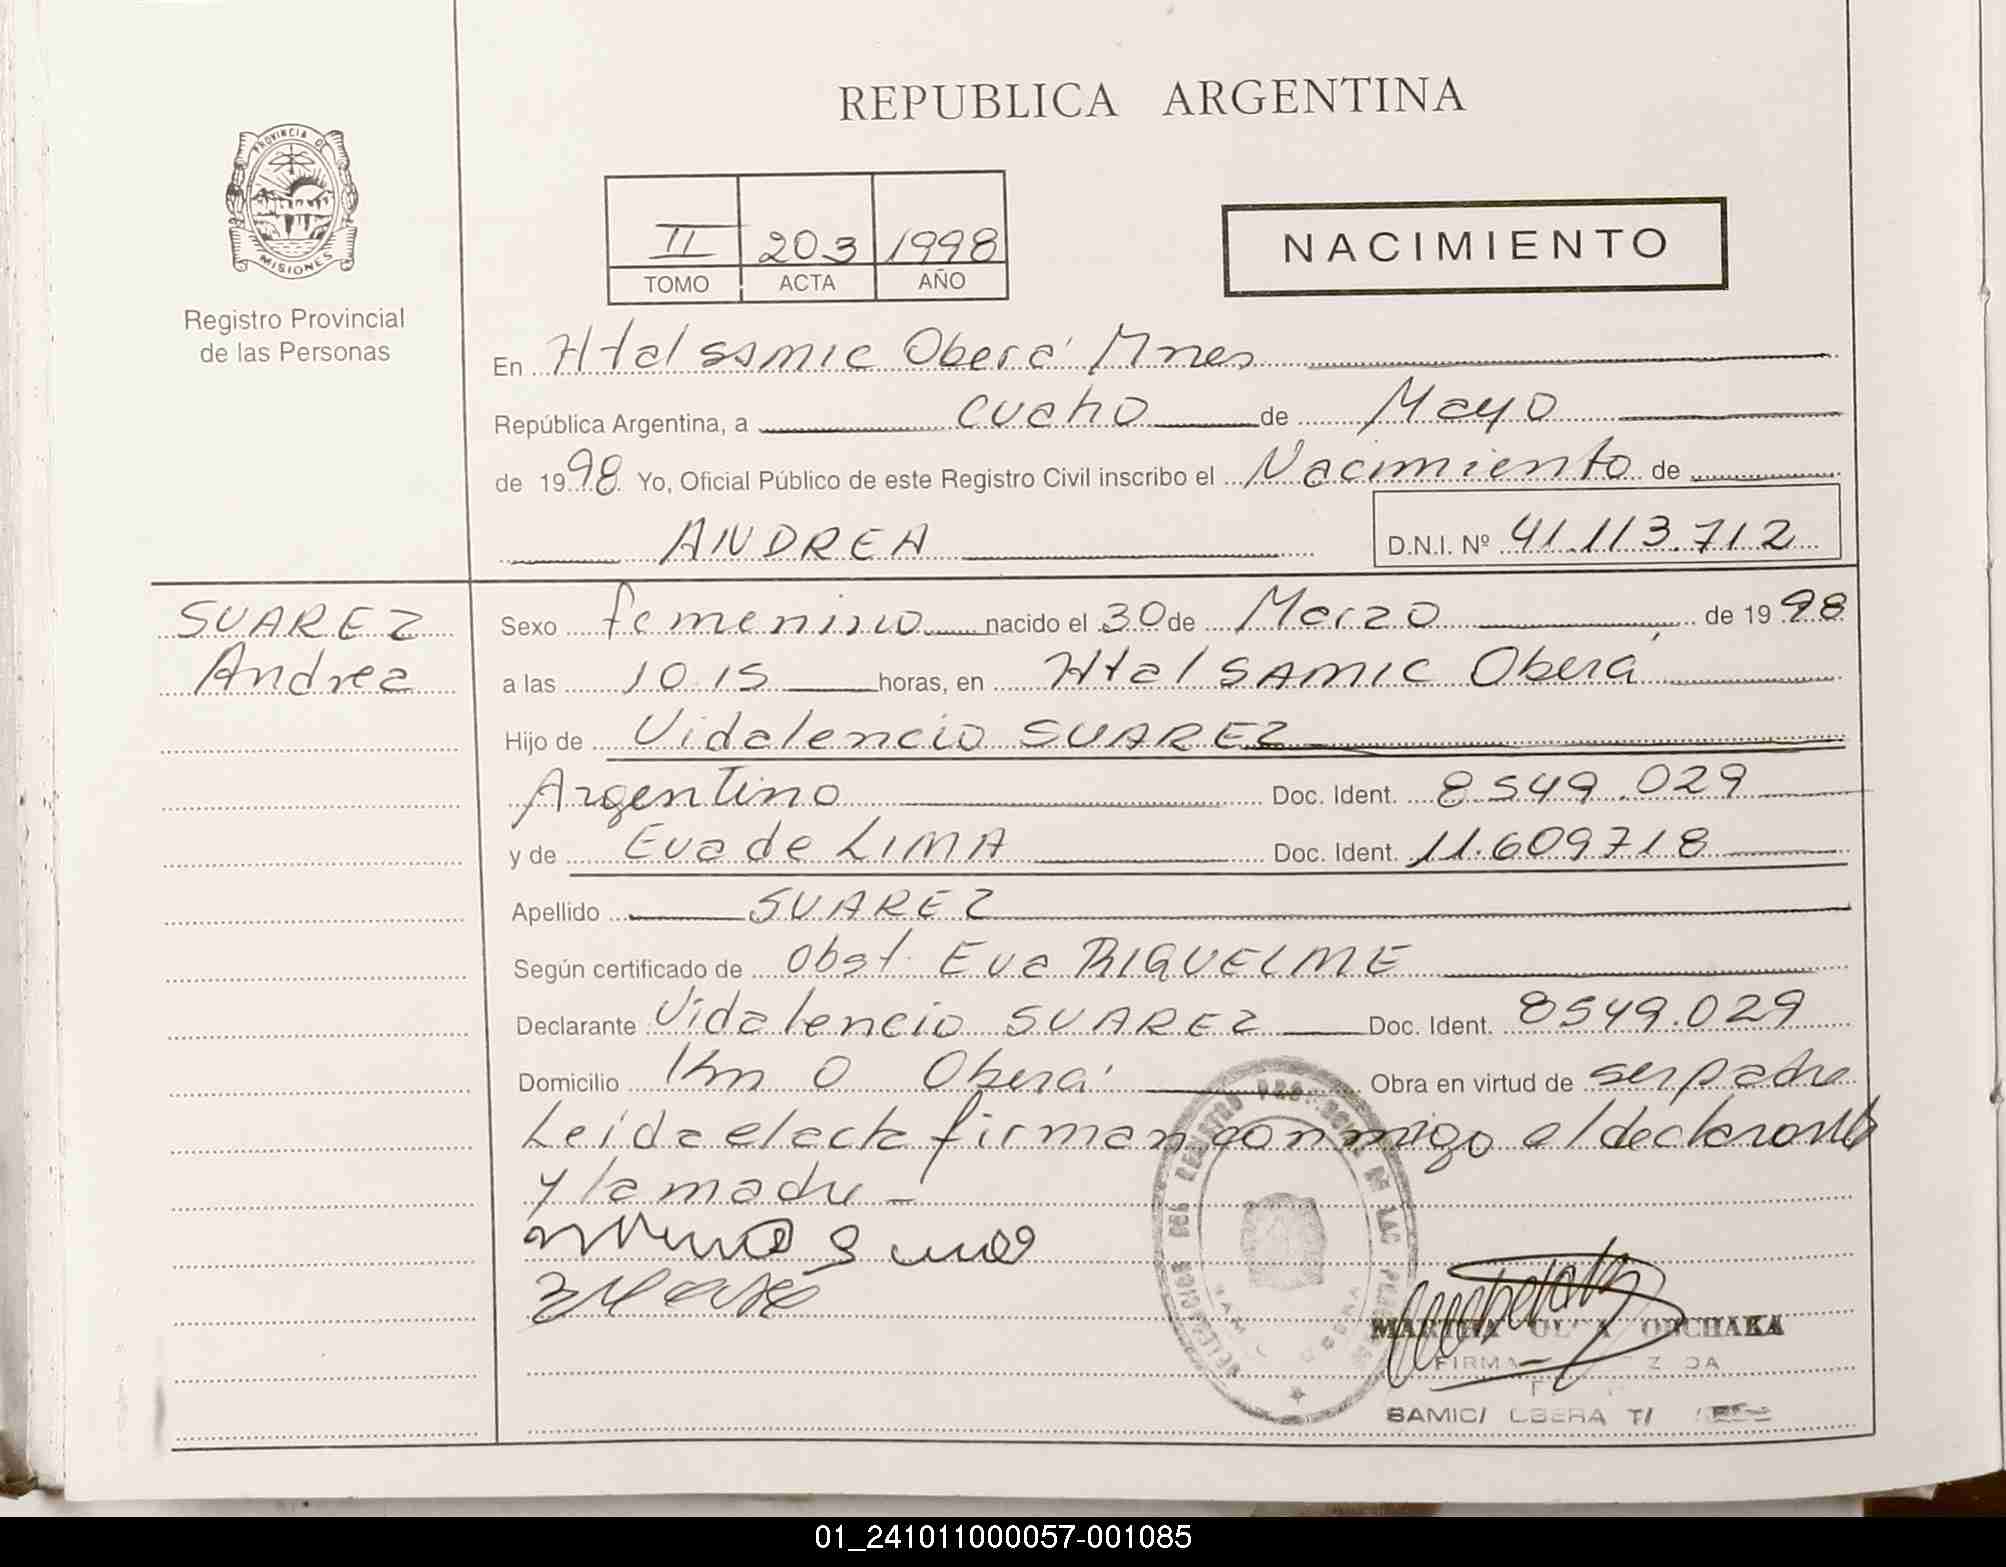 REPUBLICA ARGENTINA
PROVINCIA DE
MISIONES
Registro Provincial
de las Personas
II 203 1998
TOMO ACTA AÑO
NACIMIENTO
En Htal SAMIC Oberá Mnes
República Argentina, a cuatro de Mayo
de 1998 Yo, Oficial Público de este Registro Civil inscribo el Nacimiento de
ANDREA D.N.I. Nº 41.113.712
SUAREZ
Andrea
Sexo femenino nacido el 30 de Marzo de 1998
a las 10.15 horas, en Htal SAMIC Oberá
Hijo de Vidalencio SUAREZ
Argentino Doc. Ident. 8549.029
y de Eva de LIMA Doc. Ident. 11.609718
Apellido SUAREZ
Según certificado de Obst. Eva RIQUELME
Declarante Vidalencio SUAREZ Doc. Ident. 8549.029
Domicilio Km 0 Oberá Obra en virtud de ser padre
Leida el acta firman conmigo el declarante
y la madre -
MARTHA OLGA ONCHAKA
FIRMA
SAMIC/ OBERA
01_241011000057-001085